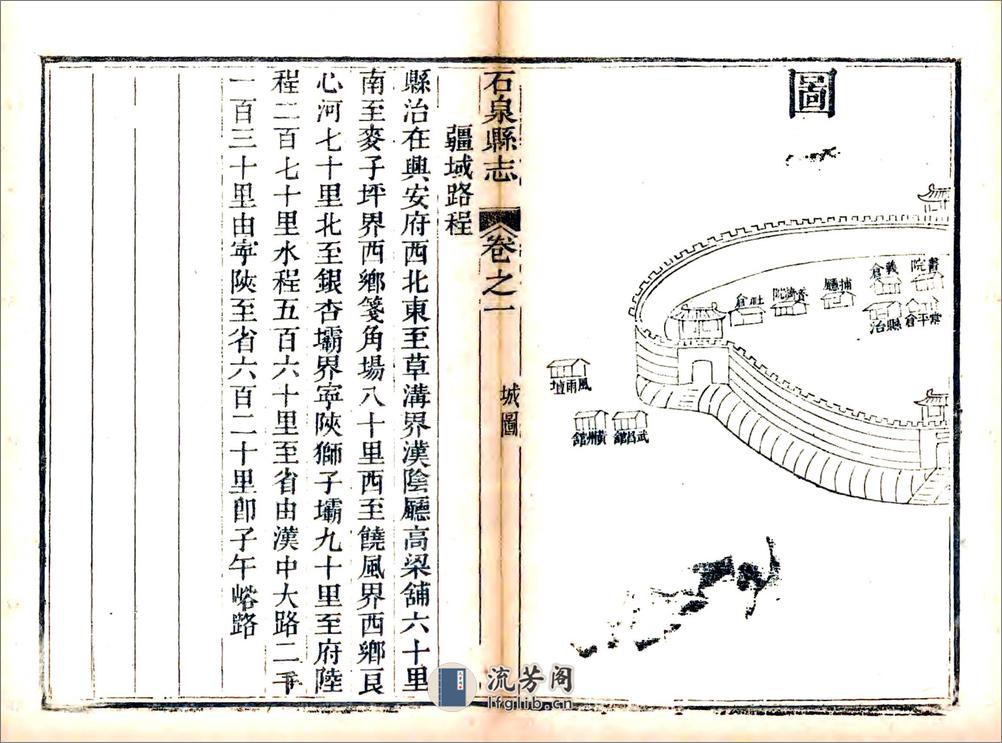 圖
書院
義倉
常平倉
縣治
捕廳
普濟院
社倉
風雨壇
武昌館
黃州館
石泉縣志
卷之一
城圖
疆域路程
縣治在興安府西北東至草溝界漢陰廳高梁舖六十里
南至麥子坪界西鄉箋角場八十里西至饒風界西鄉艮
心河七十里北至銀杏壩界寧陝獅子壩九十里至府陸
程二百七十里水程五百六十里至省由漢中大路二千
一百三十里由寧陝至省六百二十里卽子午峪路
流芳阁
lfglib.cn